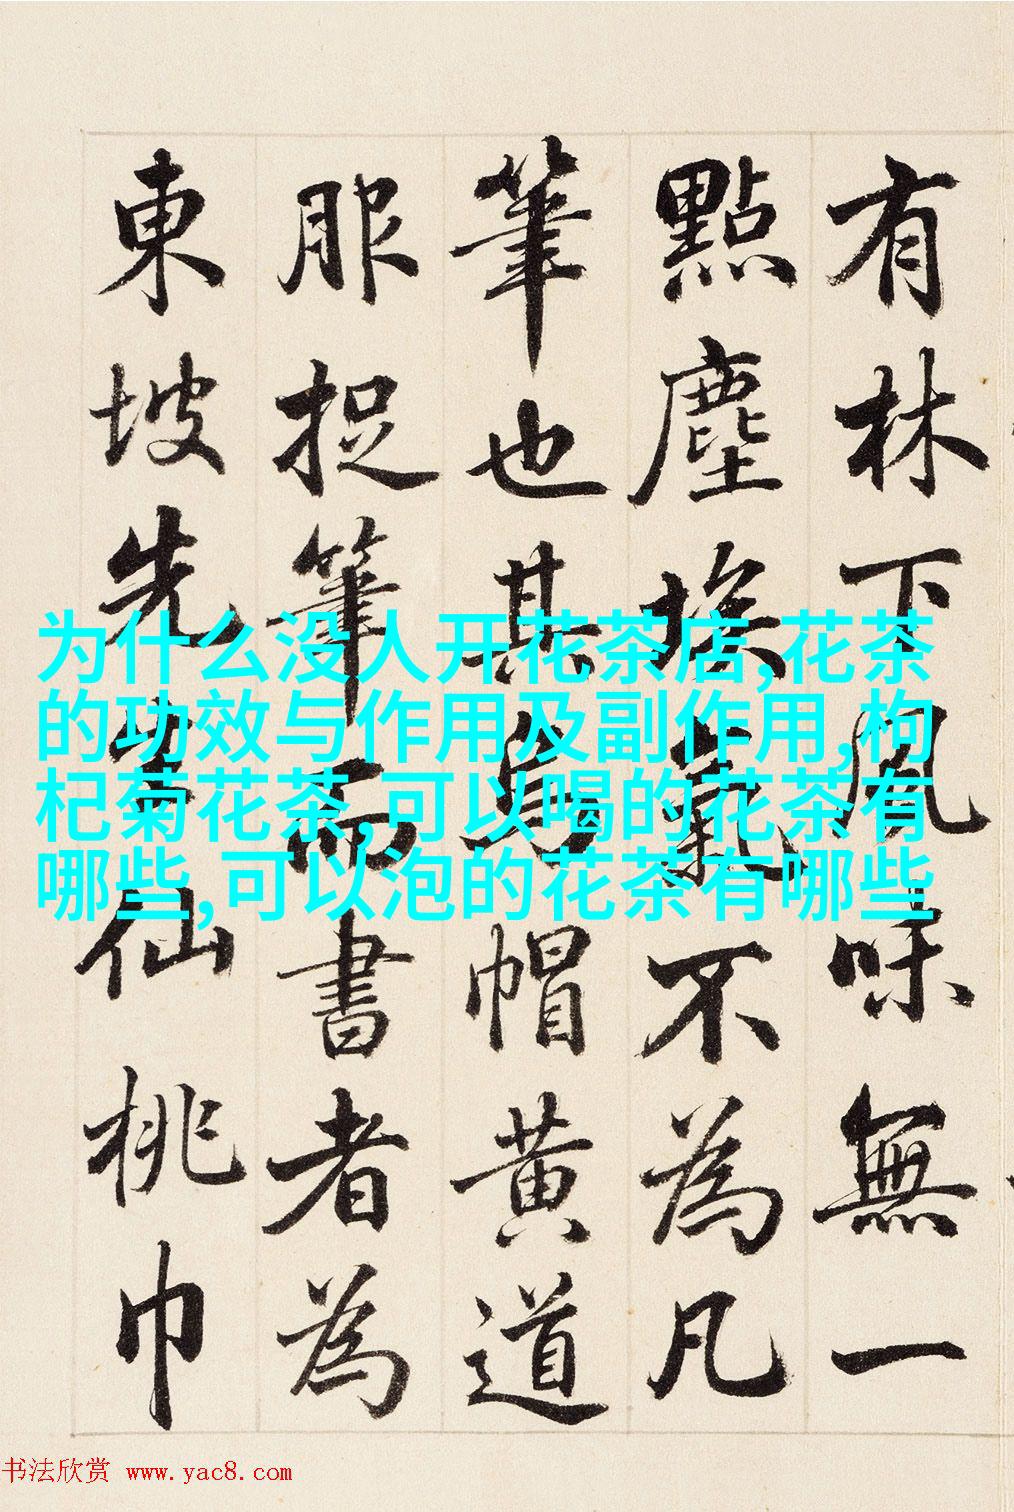 有林下風味無一
點塵埃氣不為凡
筆也其烏帽黃道
服捉筆而書者為
東坡先生仙桃巾
为什么没人开花茶店,花茶
的功效与作用及副作用,枸
杞菊花茶,可以喝的花茶有
哪些,可以泡的花茶有哪些
书法欣赏 www.yac8.com